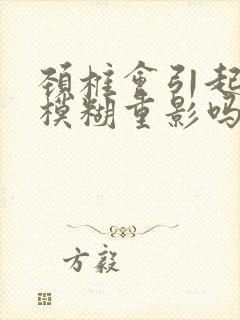 颈椎会引起
模糊重影吗
方毅